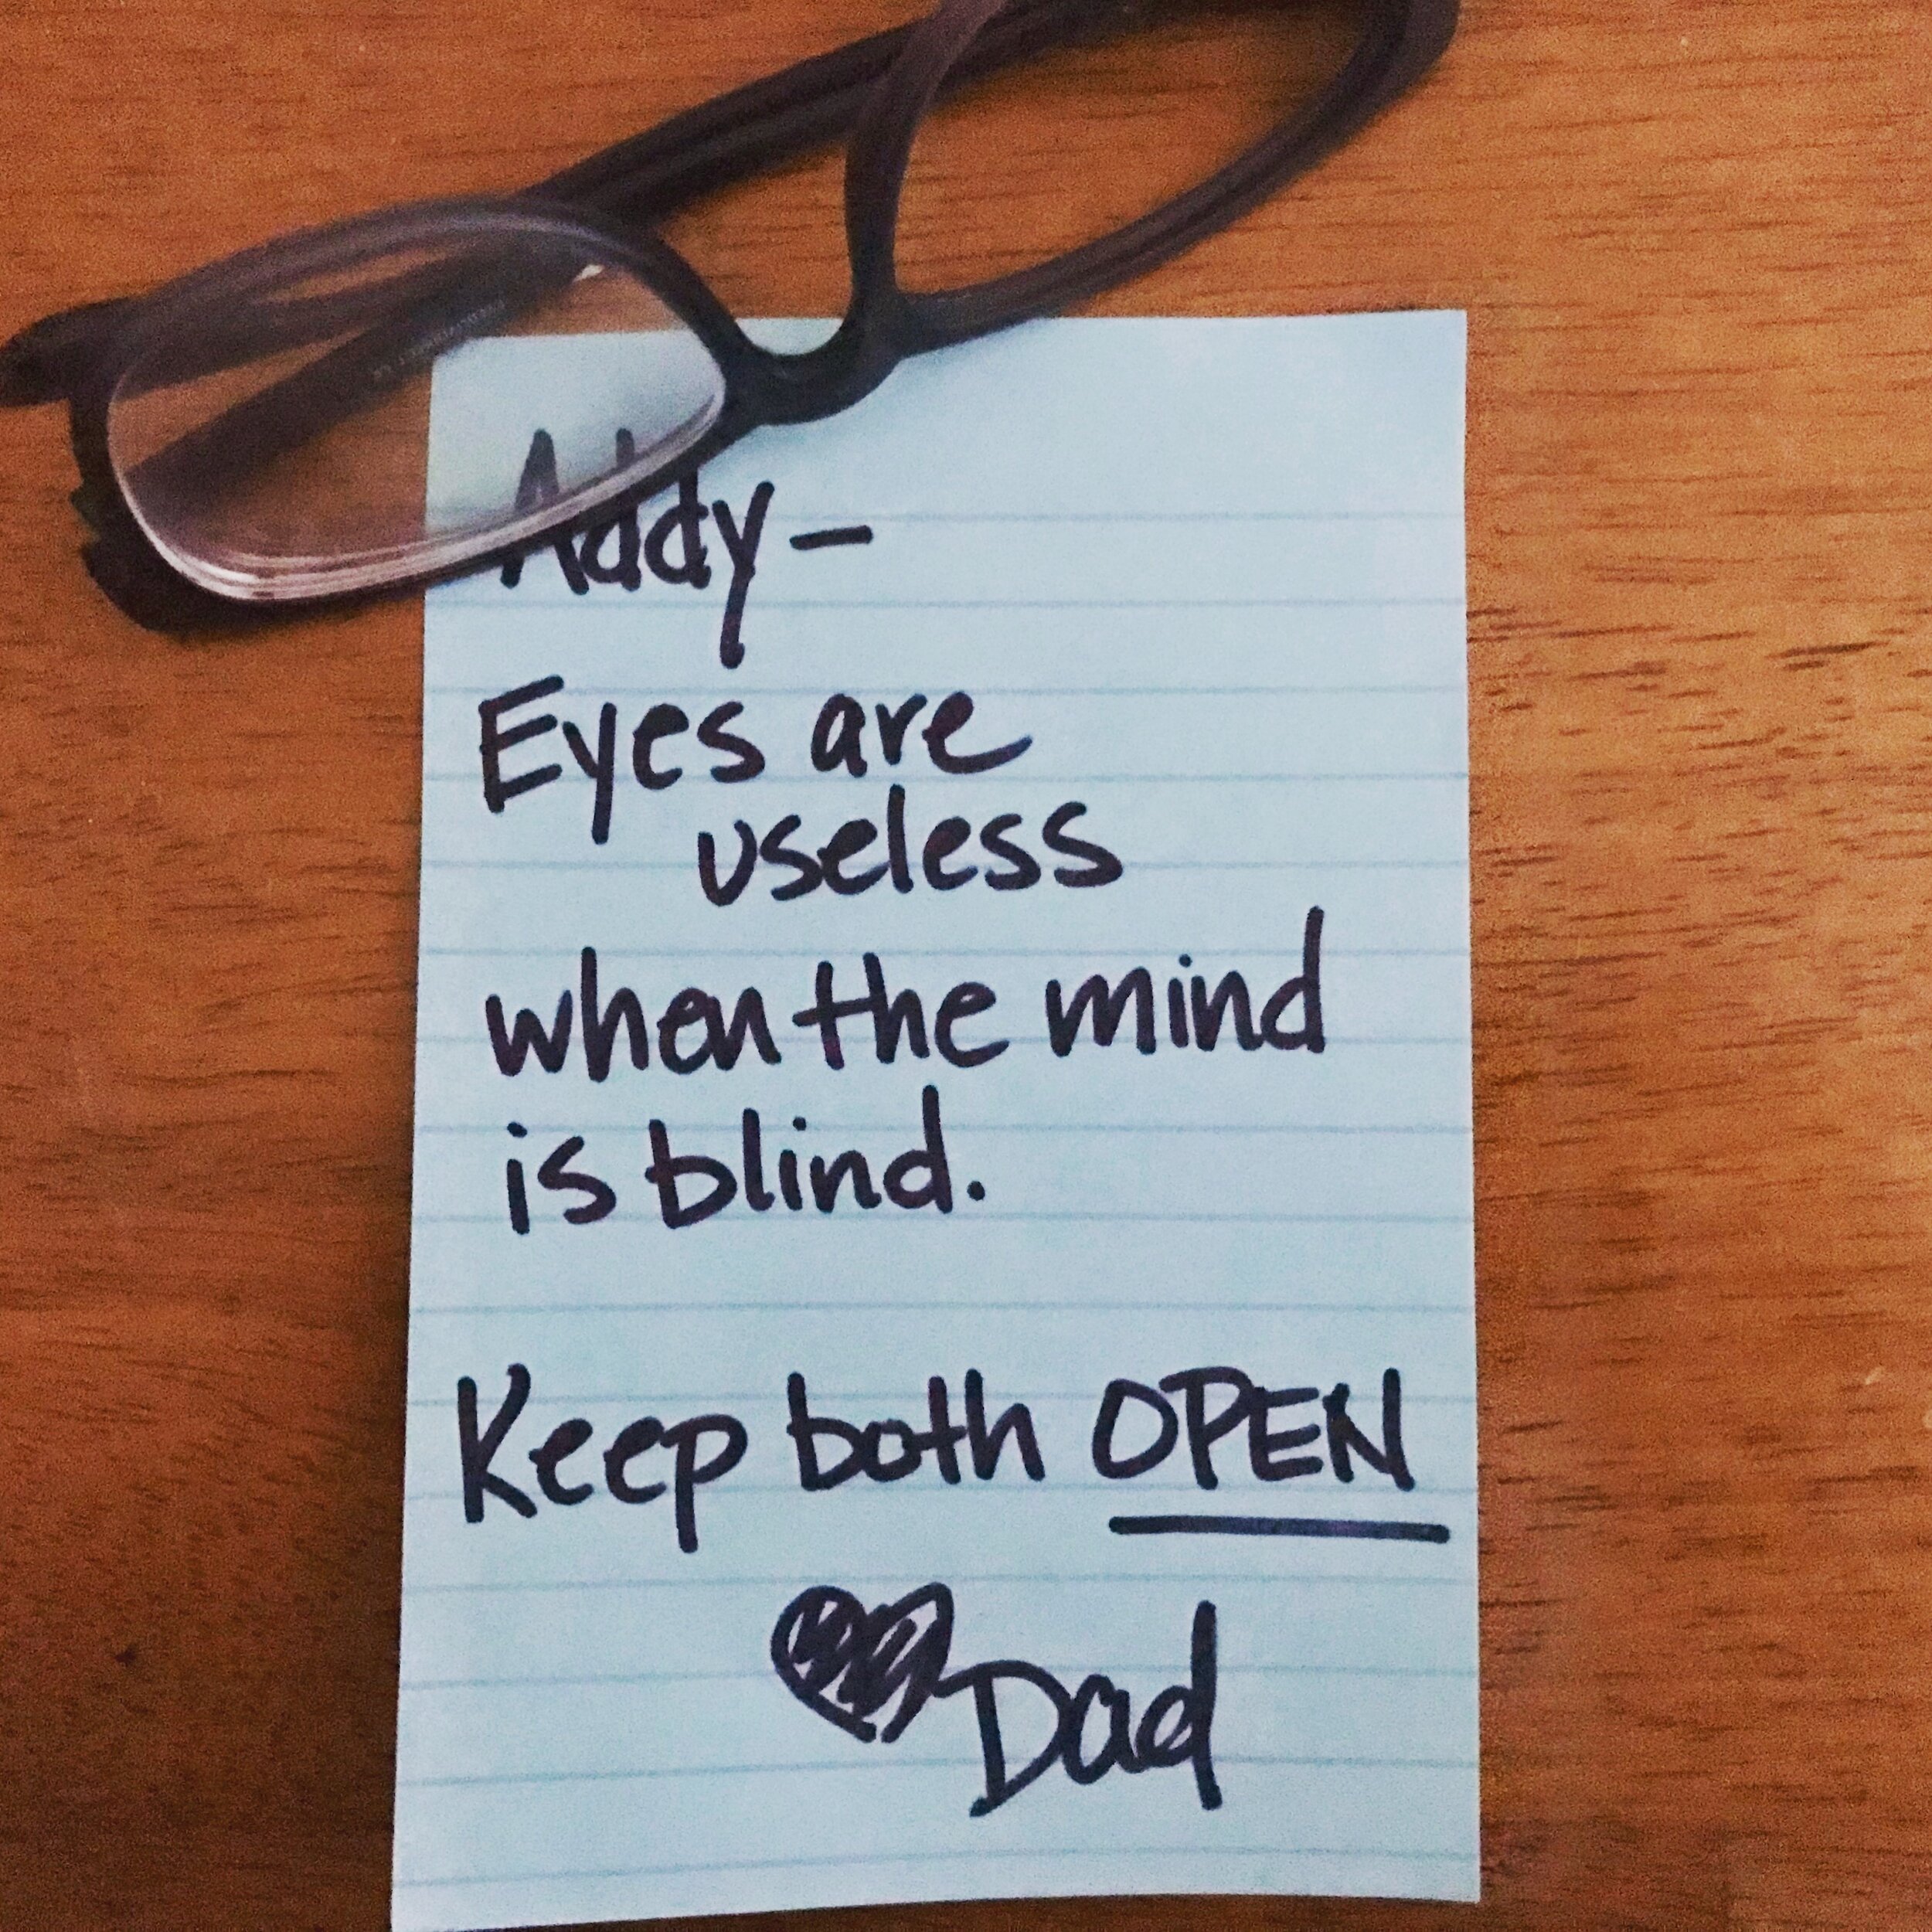 Addy –
Eyes are
useless
when the mind
is blind.
Keep both OPEN
♥Dad